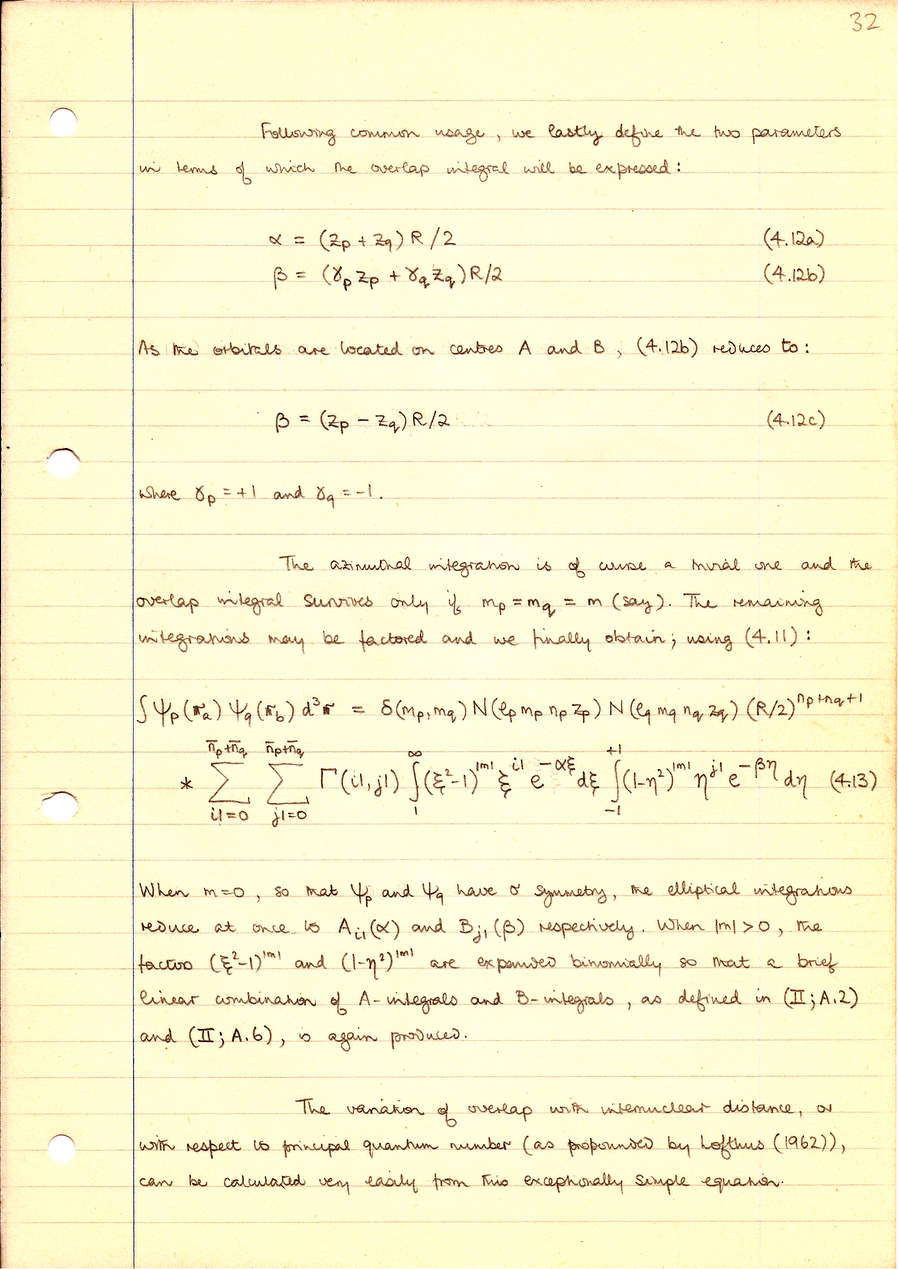 32
Following common usage, we lastly define the two parameters
in terms of which the overlap integral will be expressed:
α = (Zp + Zq) R / 2 (4.12a)
β = (γp Zp + γq Zq) R/2 (4.12b)
As the orbitals are located on centres A and B, (4.12b) reduces to:
β = (Zp − Zq) R/2 (4.12c)
where γp = +1 and γq = −1.
The azimuthal integration is of course a trivial one and the
overlap integral survives only if mp = mq = m (say). The remaining
integrations may be factored and we finally obtain; using (4.11):
∫ Ψp(ra) Ψq(rb) d³r = δ(mp, mq) N(ℓp mp np Zp) N(ℓq mq nq Zq) (R/2)^(np+nq+1)
* Σ_{i1=0}^{n̄p+n̄q} Σ_{j1=0}^{n̄p+n̄q} Γ(i1, j1) ∫_1^∞ (ξ²−1)^|m| ξ^i1 e^−αξ dξ ∫_−1^+1 (1−η²)^|m| η^j1 e^−βη dη (4.13)
When m=0, so that Ψp and Ψq have σ symmetry, the elliptical integrations
reduce at once to Ai1(α) and Bj1(β) respectively. When |m| > 0, the
factors (ξ²−1)^|m| and (1−η²)^|m| are expanded binomially so that a brief
linear combination of A-integrals and B-integrals, as defined in (II; A.2)
and (II; A.6), is again produced.
The variation of overlap with internuclear distance, or
with respect to principal quantum number (as propounded by Lofthus (1962)),
can be calculated very easily from this exceptionally simple equation.